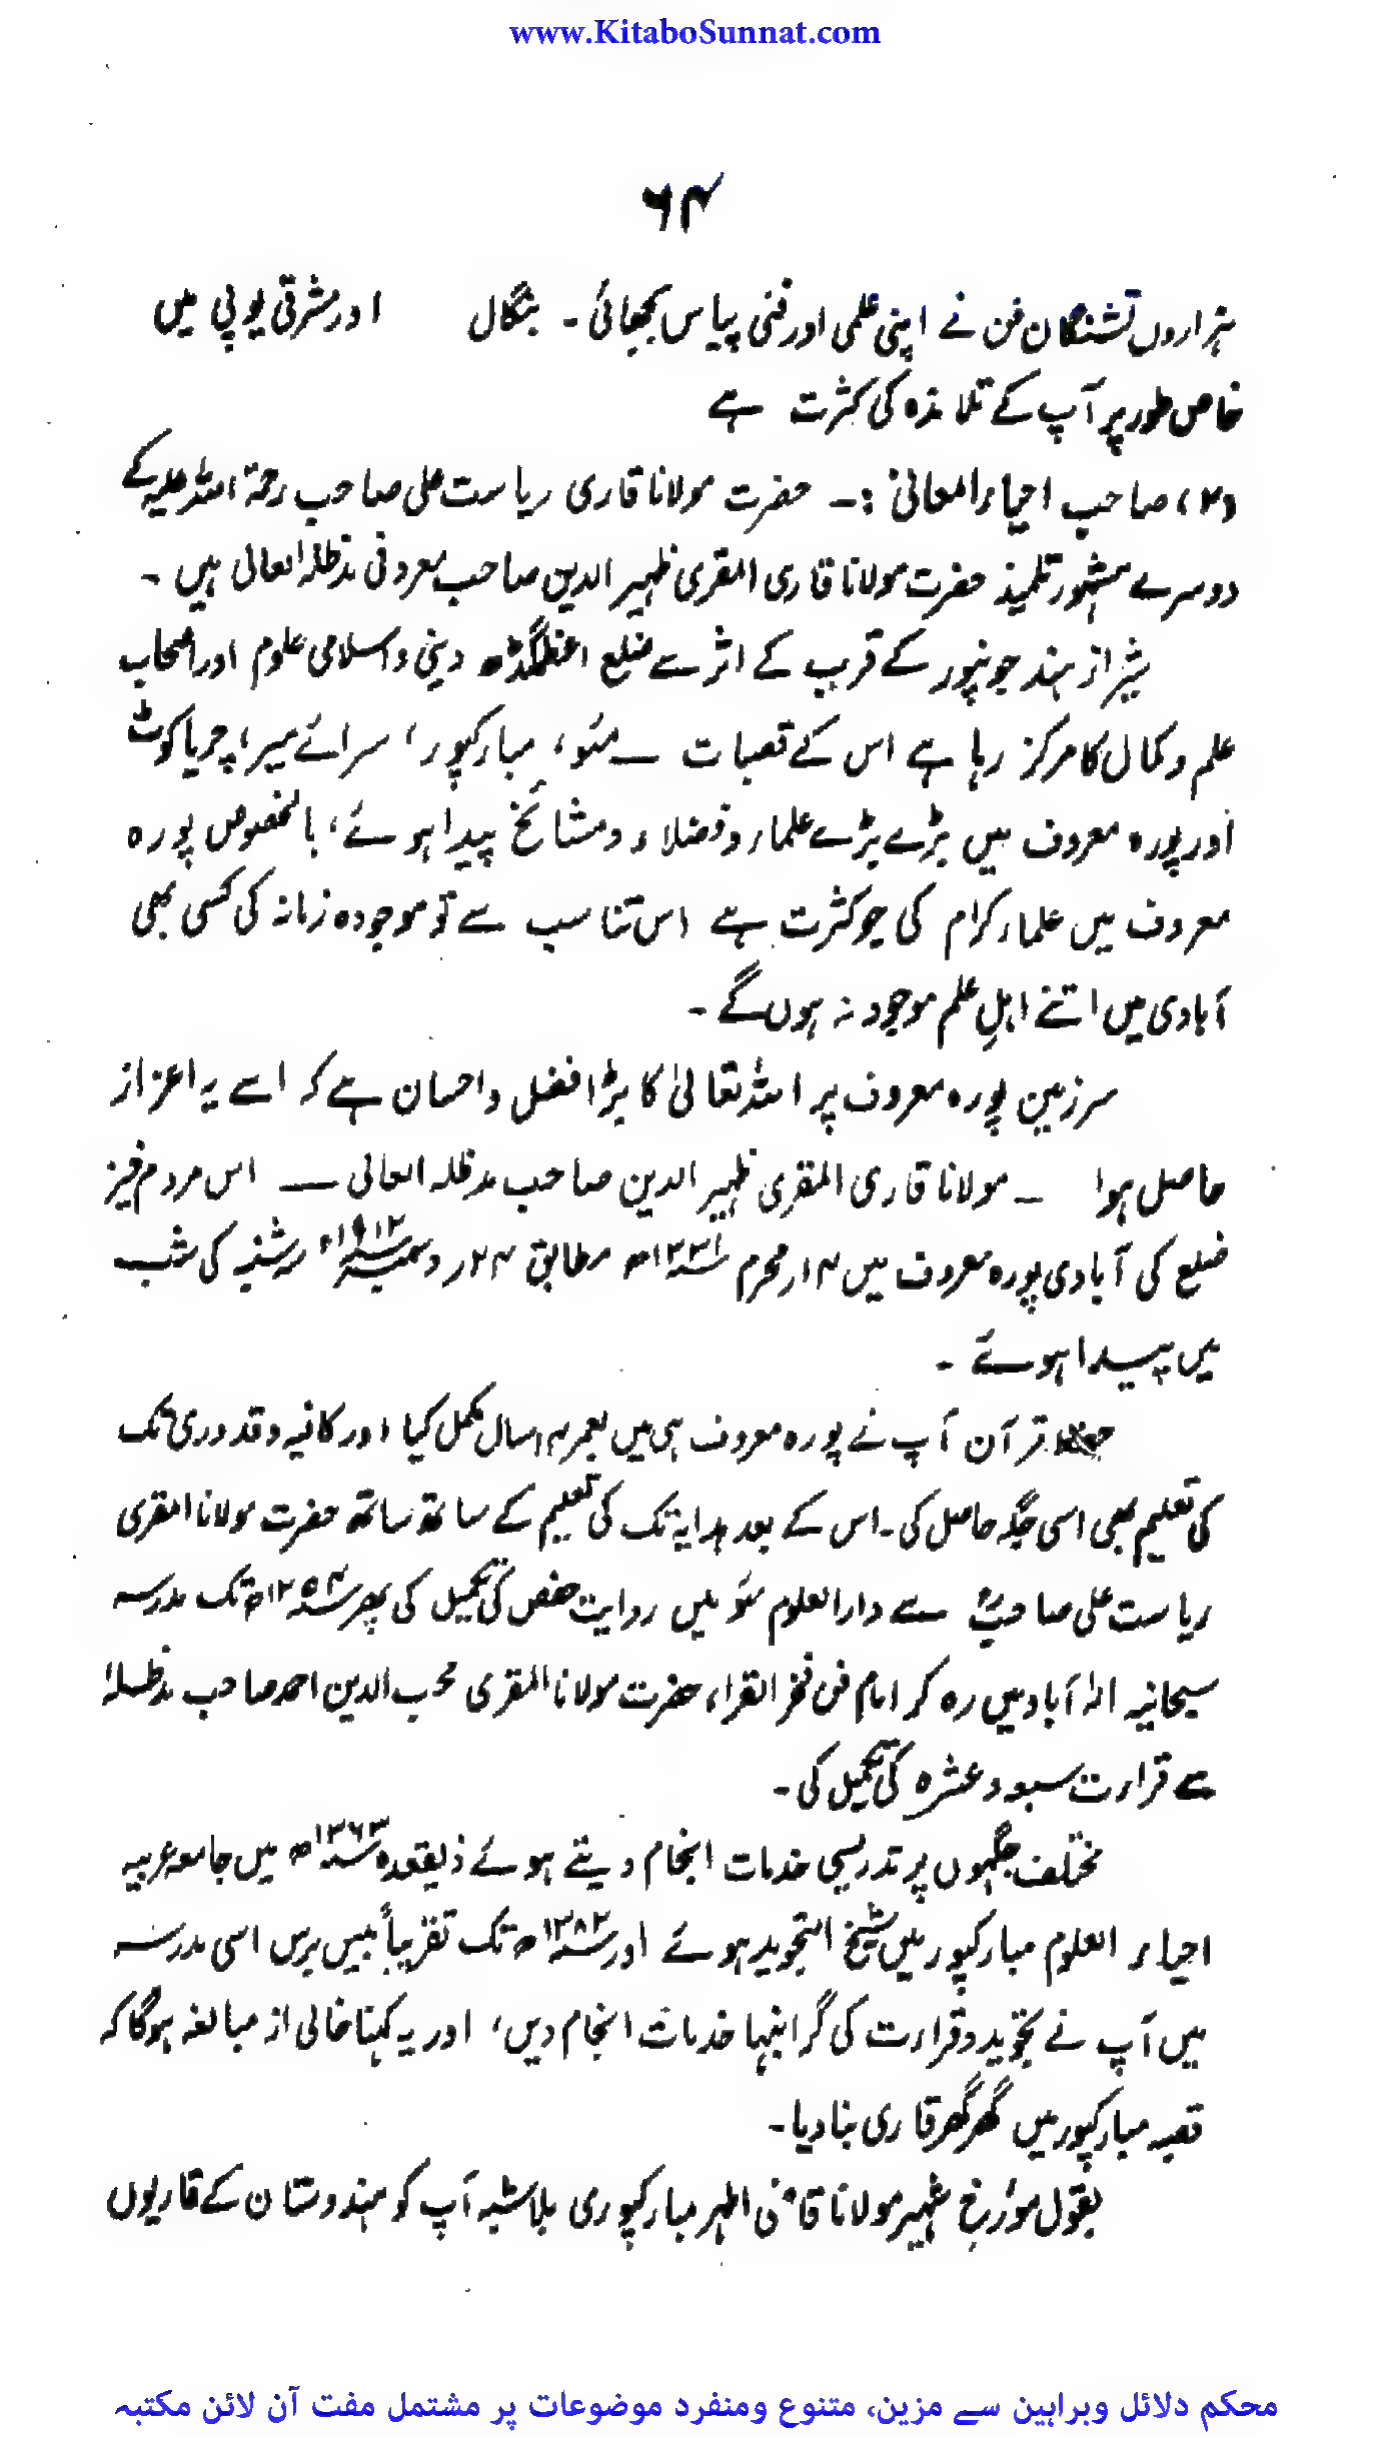 www.KitaboSunnat.com
۶۴
ہزاروں تشنگان فن نے اپنی علمی اور فنی پیاس بجھائی ۔ بنگال اور مشرقی یوپی میں
خاص طور پر آپ کے تلامذہ کی کثرت ہے
(۲) صاحب احیاء المعانی :۔ حضرت مولانا قاری ریاست علی صاحب رحمۃ اللہ علیہ کے
دوسرے مشہور تلمیذ حضرت مولانا قاری المقری ظہیر الدین صاحب معروفی مدظلہ العالی ہیں ۔
شیراز ہند جونپور کے قرب کے اثر سے ضلع اعظم گڈھ دینی و اسلامی علوم اور اصحاب
علم و کمال کا مرکز رہا ہے اس کے قصبات — مئو، مبارکپور، سرائے میر، چریاکوٹ
اور پورہ معروف میں بڑے بڑے علماء و فضلاء و مشائخ پیدا ہوئے، بالخصوص پورہ
معروف میں علماء کرام کی جو کثرت ہے اس تناسب سے تو موجودہ زمانہ کی کسی بھی
آبادی میں اتنے اہلِ علم موجود نہ ہوں گے ۔
سرزمین پورہ معروف پر اللہ تعالیٰ کا بڑا فضل و احسان ہے کہ اسے یہ اعزاز
حاصل ہوا ۔ مولانا قاری المقری ظہیر الدین صاحب مدظلہ العالی — اس مردم خیز
ضلع کی آبادی پورہ معروف میں ۱۴؍محرم ۱۳۳۱ھ مطابق ۲۴؍دسمبر ۱۹۱۲ء سہ شنبہ کی شب
میں پیدا ہوئے ۔
حفظ قرآن آپ نے پورہ معروف ہی میں بعمر ۱۴ سال مکمل کیا اور کافیہ و قدوری تک
کی تعلیم بھی اسی جگہ حاصل کی ۔ اس کے بعد ہدایہ تک کی تعلیم کے ساتھ ساتھ حضرت مولانا المقری
ریاست علی صاحبؒ سے دارالعلوم مئو میں روایت حفص کی تکمیل کی پھر ۱۲۵۴ھ تک مدرسہ
سبحانیہ الہ آباد میں رہ کر امام فن فخر القراء حضرت مولانا المقری محب الدین احمد صاحب مدظلہٗ
سے قراءت سبعہ و عشرہ کی تکمیل کی ۔
مختلف جگہوں پر تدریسی خدمات انجام دیتے ہوئے ذیقعدہ ۱۳۶۳ھ میں جامعہ عربیہ
احیاء العلوم مبارکپور میں شیخ التجوید ہوئے اور ۱۳۸۲ھ تک تقریباً بیس برس اسی مدرسہ
میں آپ نے تجوید و قراءت کی گرانبہا خدمات انجام دیں، اور یہ کہنا خالی از مبالغہ ہوگا کہ
قصبہ مبارکپور میں گھر گھر قاری بنا دیا ۔
بقول مؤرخ شہیر مولانا قاضی اطہر مبارکپوری بلاشبہ آپ کو ہندوستان کے قاریوں
محکم دلائل وبراہین سے مزین، متنوع ومنفرد موضوعات پر مشتمل مفت آن لائن مکتبہ